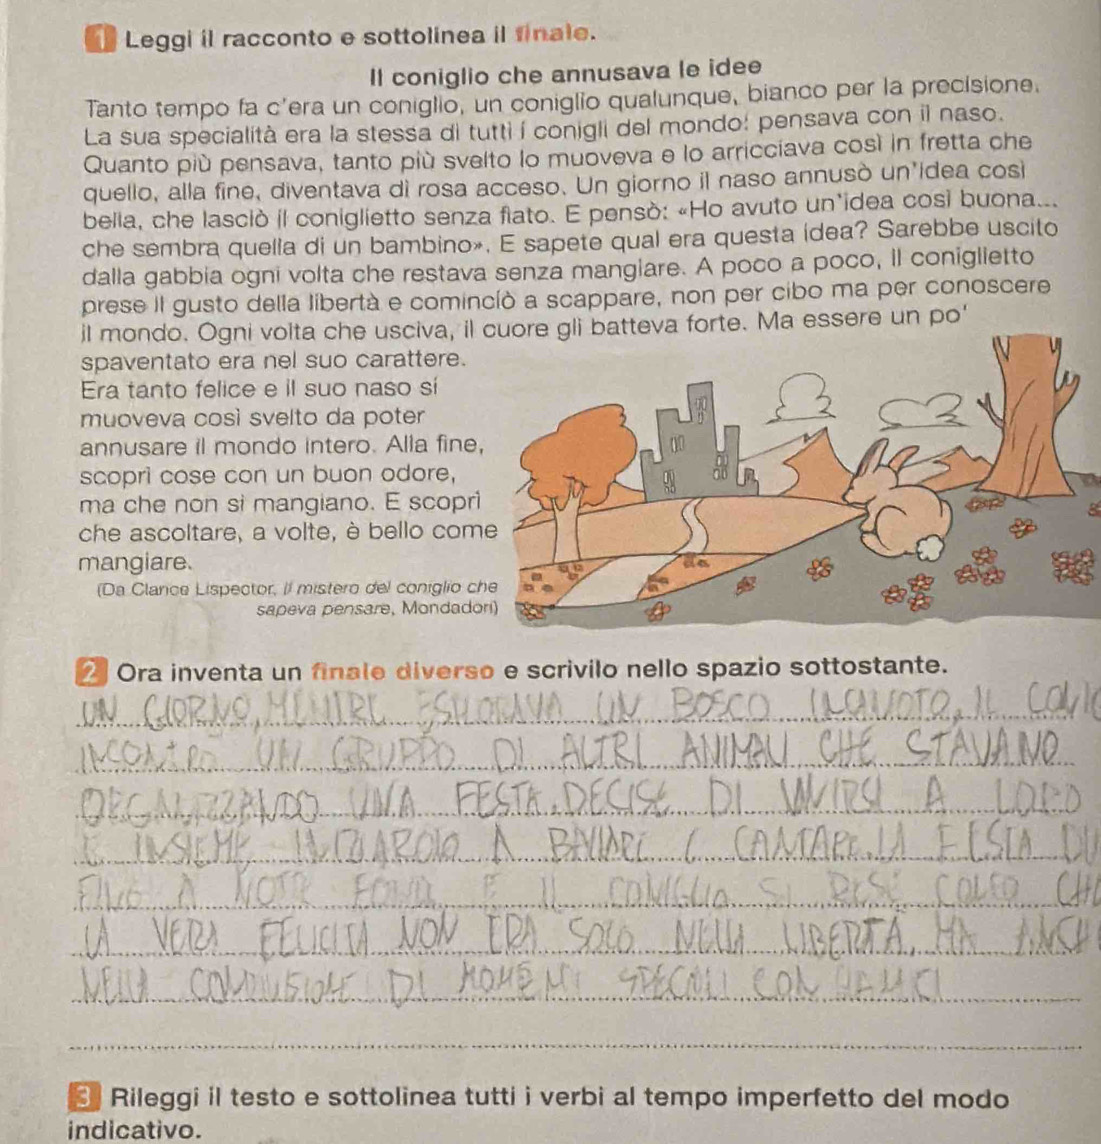 1 Leggi il racconto e sottolinea il finale.
Il coniglio che annusava le idee
Tanto tempo fa c'era un coniglio, un coniglio qualunque, bianco per la precisione.
La sua specialità era la stessa di tutti i conigli del mondo: pensava con il naso.
Quanto più pensava, tanto più svelto lo muoveva e lo arricciava così in fretta che
quello, alla fine, diventava di rosa acceso. Un giorno il naso annusò un'idea così
bella, che lasciò il coniglietto senza fiato. E pensò: «Ho avuto un'idea così buona...
che sembra quella di un bambino». E sapete qual era questa idea? Sarebbe uscito
dalla gabbia ogni volta che restava senza mangiare. A poco a poco, il coniglietto
prese il gusto della libertà e cominciò a scappare, non per cibo ma per conoscere
il mondo. Ogni volta che usciva, il cuore gli batteva forte. Ma essere un po'
spaventato era nel suo carattere.
Era tanto felice e il suo naso si
muoveva così svelto da poter
annusare il mondo intero. Alla fine,
scoprì cose con un buon odore,
ma che non si mangiano. E scoprì
che ascoltare, a volte, è bello come
mangiare.
(Da Clarice Lispector, Il mistero del coniglio che
sapeva pensare, Mondadori)
2 Ora inventa un finale diverso e scrivilo nello spazio sottostante.
UN GIORNO, MENTRE ESPLORAVA UN BOSCO INCANTATO, IL
INCONTRO UN GRUPPO DI ALTRI ANIMALI CHE STAVANO
ORGANIZZANDO UNA FESTA. DECISE DI UNIRSI A LORO
E INSIEME INIZIAROLO A BALLARE E CANTARE. LA FESTA
FINO A NOTTE FONDA E IL CONIGLIO SI RESE
LA VERA FELICITÀ NON ERA SOLO NELLA LIBERTÀ, MA
NELLA CONDIVISIONE DI MOMENTI SPECIALI CON
3 Rileggi il testo e sottolinea tutti i verbi al tempo imperfetto del modo
indicativo.